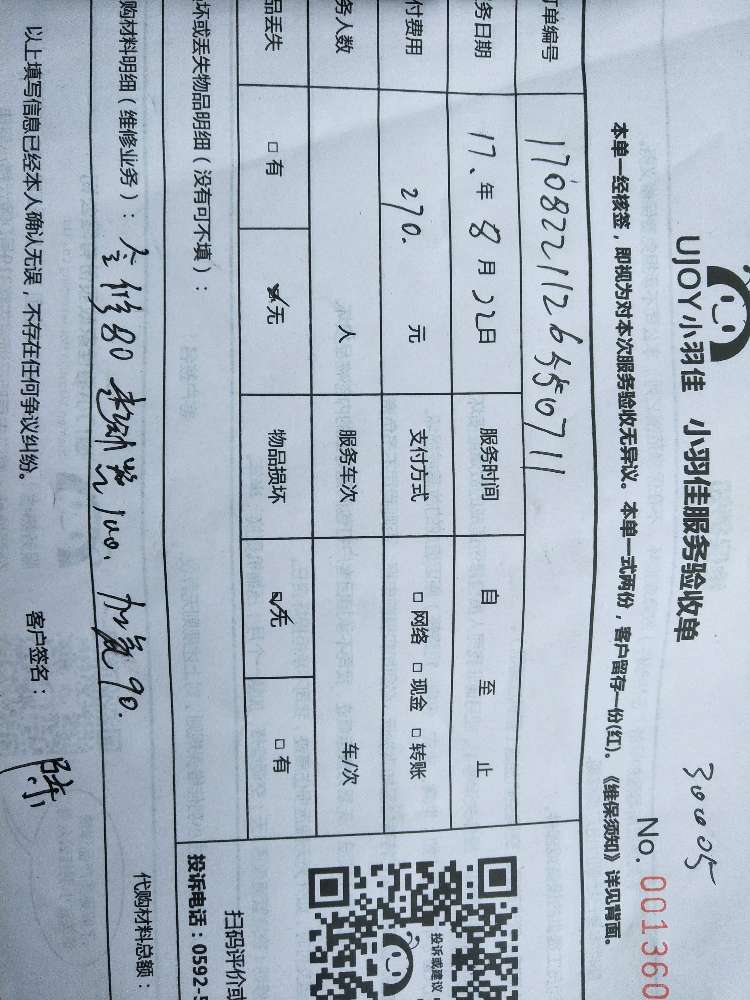 UJOY小羽佳 小羽佳服务验收单
30005
No. 001360
本单一经核签，即视为对本次服务验收无异议。本单一式两份，客户留存一份(红)。《维保须知》详见背面。
订单编号 170822112655071 1
务日期 17、年 8 月 22日 服务时间 自 至 止
付费用 270. 元 支付方式 □ 网络 □ 现金 □ 转账
务人数 人 服务车次 车/次
品丢失 □ 有 ☑无 物品损坏 ☑无 □ 有
坏或丢失物品明细（没有可不填）：
投诉或建议
扫码评价或
投诉电话：0592-5
购材料明细（维修业务）： 80 100、加氟90.
代购材料总额：
以上填写信息已经本人确认无误，不存在任何争议纠纷。 客户签名： 陈